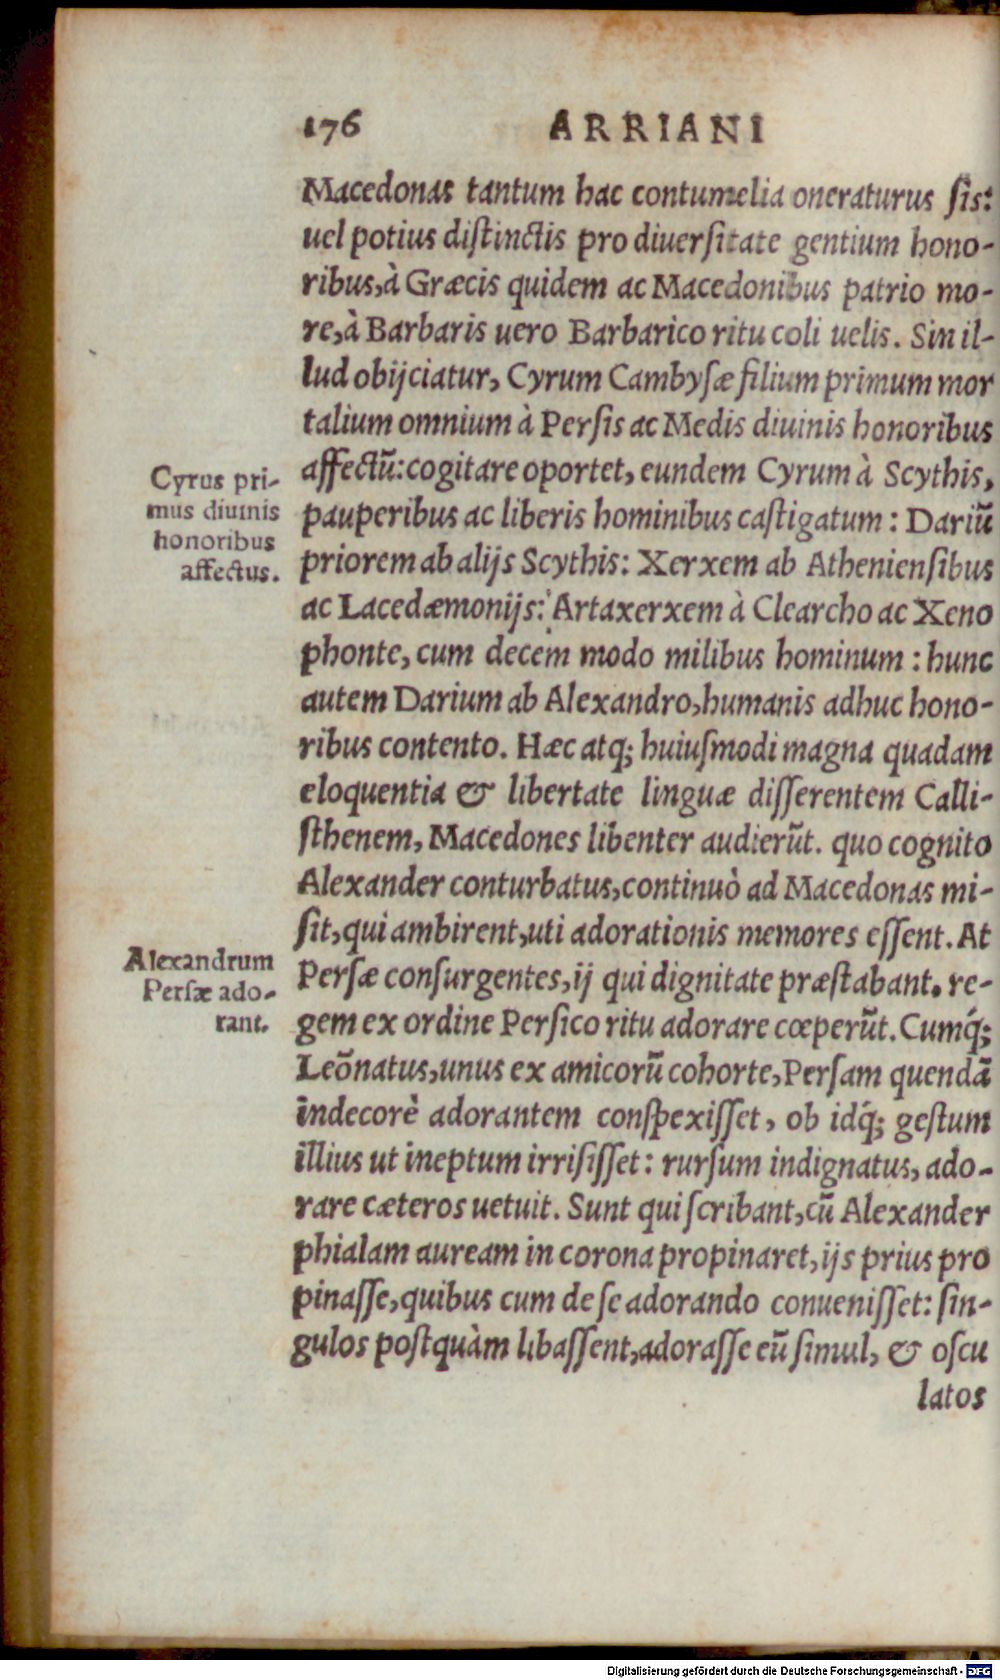 176 ARRIANI
Macedonas tantum hac contumelia oneraturus ſis:
uel potius diſtinctis pro diuerſitate gentium hono-
ribus,à Græcis quidem ac Macedonibus patrio mo-
re,à Barbaris uero Barbarico ritu coli uelis. Sin il-
lud obijciatur, Cyrum Cambyſæ filium primum mor
talium omnium à Perſis ac Medis diuinis honoribus
affectũ:cogitare oportet, eundem Cyrum à Scythis,
pauperibus ac liberis hominibus caſtigatum: Dariũ
priorem ab alijs Scythis: Xerxem ab Athenienſibus
ac Lacedæmonijs: Artaxerxem à Clearcho ac Xeno
phonte, cum decem modo milibus hominum: hunc
autem Darium ab Alexandro,humanis adhuc hono-
ribus contento. Hæc atq; huiuſmodi magna quadam
eloquentia & libertate linguæ diſſerentem Calli-
ſthenem, Macedones libenter audierũt. quo cognito
Alexander conturbatus,continuò ad Macedonas mi-
ſit,qui ambirent,uti adorationis memores eſſent. At
Perſæ conſurgentes,ij qui dignitate præſtabant. re-
gem ex ordine Perſico ritu adorare cœperũt. Cumq́;
Leõnatus,unus ex amicorũ cohorte,Perſam quendã
indecorè adorantem conſpexiſſet, ob idq́; geſtum
illius ut ineptum irriſiſſet: rurſum indignatus, ado-
rare cæteros uetuit. Sunt qui ſcribant,cũ Alexander
phialam auream in corona propinaret,ijs prius pro
pinaſſe,quibus cum de ſe adorando conueniſſet: ſin-
gulos poſtquàm libaſſent,adoraſſe eũ ſimul, & oſcu
latos
Cyrus pri-
mus diuinis
honoribus
affectus.
Alexandrum
Perſæ ado-
rant.
Digitalisierung gefördert durch die Deutsche Forschungsgemeinschaft - DFG